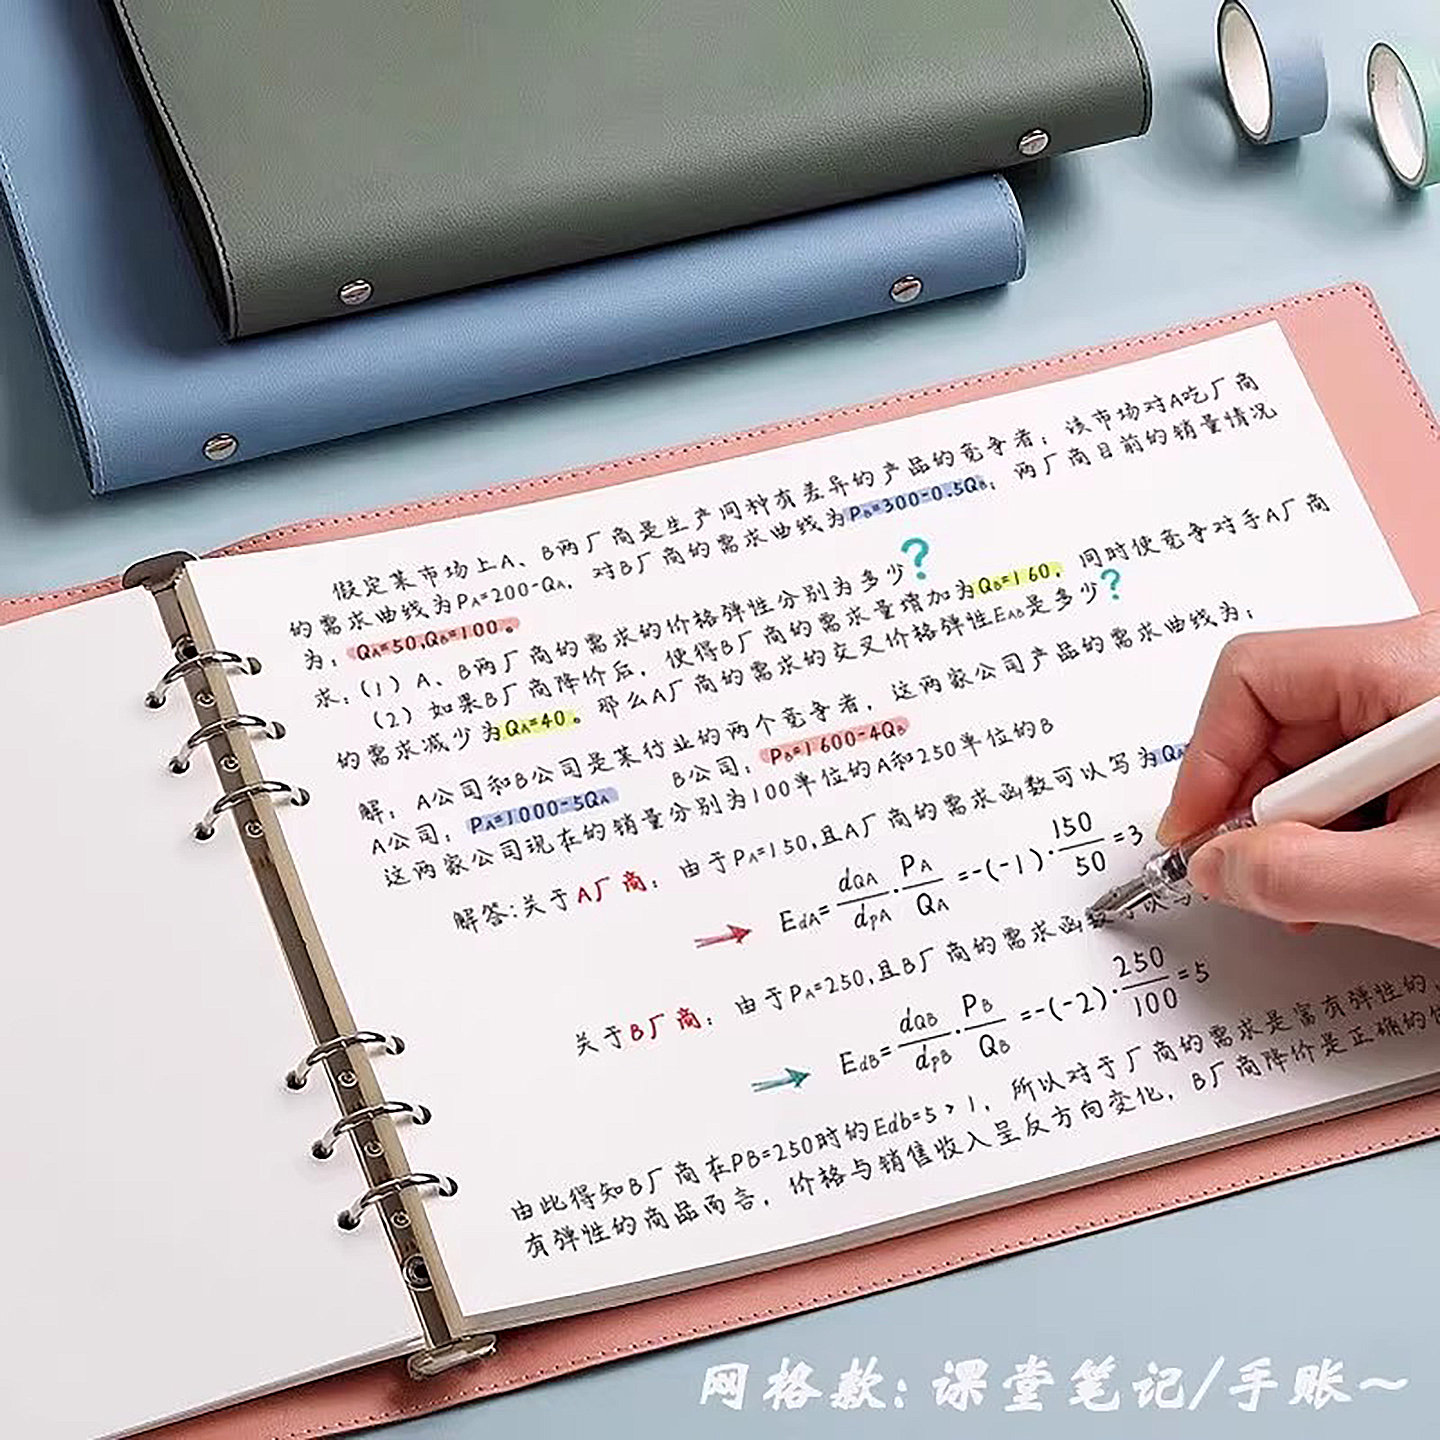 假定某市场上A、B两厂商是生产同种有差异的产品的竞争者；该市场对A吃厂商
的需求曲线为PA=200-QA，对B厂商的需求曲线为PB=300-0.5QB；两厂商目前的销量情况
为：QA=50,QB=100。
求：(1) A、B两厂商的需求的价格弹性分别为多少？
(2) 如果B厂商降价后，使得B厂商的需求量增加为QB=160，同时使竞争对手A厂商
的需求减少为QA=40。那么A厂商的需求的交叉价格弹性EAB是多少？
解：A公司和B公司是某行业的两个竞争者，这两家公司产品的需求曲线为；
A公司：PA=1000-5QA B公司：PB=1600-4QB
这两家公司现在的销量分别为100单位的A和250单位的B
解答:关于A厂商：由于PA=150,且A厂商的需求函数可以写为QA
EdA=dQA/dpA·PA/QA=-(-1)·150/50=3
关于B厂商：由于PA=250,且B厂商的需求函数可以写
EdB=dQB/dpB·PB/QB=-(-2)·250/100=5
由此得知B厂商在PB=250时的Edb=5>1，所以对于厂商的需求是富有弹性的，
有弹性的商品而言，价格与销售收入呈反方向变化，B厂商降价是正确的
网格款:课堂笔记/手账~